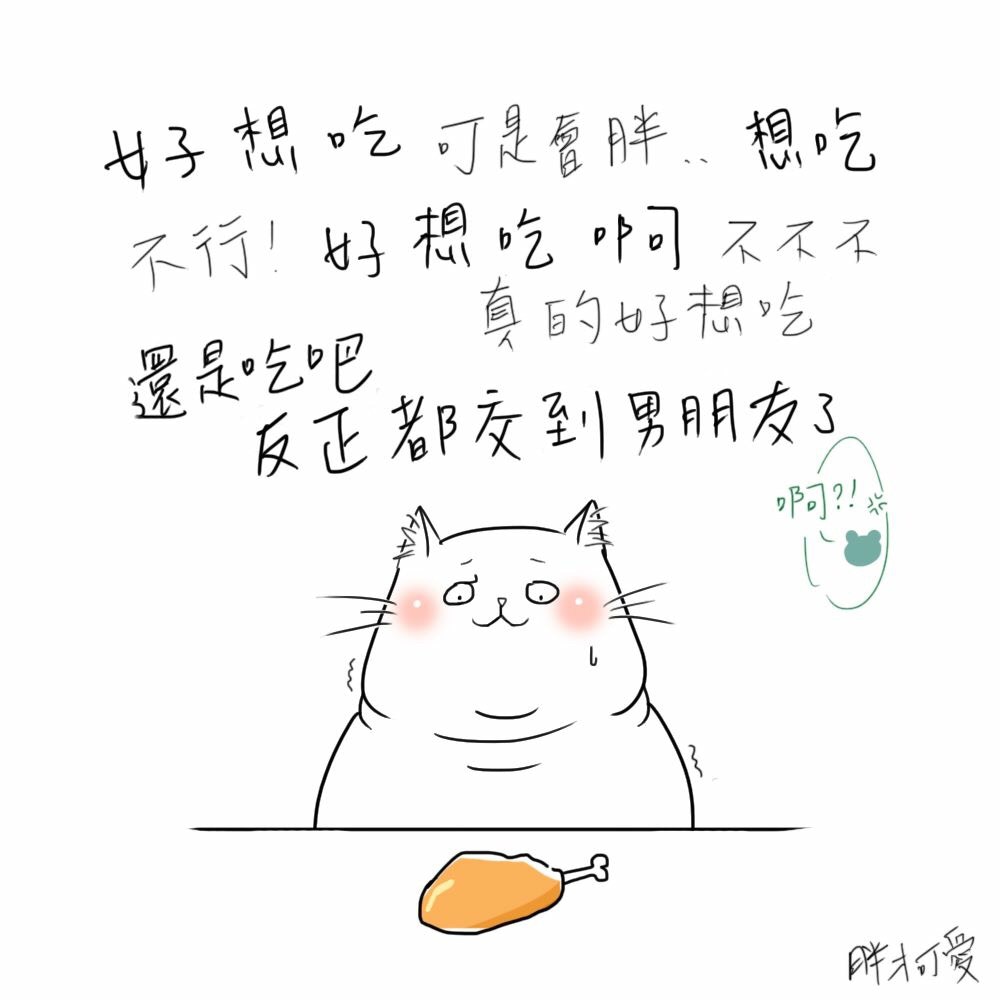 好想吃 可是會胖.. 想吃
不行! 好想吃啊 不不不
真的好想吃
還是吃吧
反正都交到男朋友了
啊?!
胖才可愛